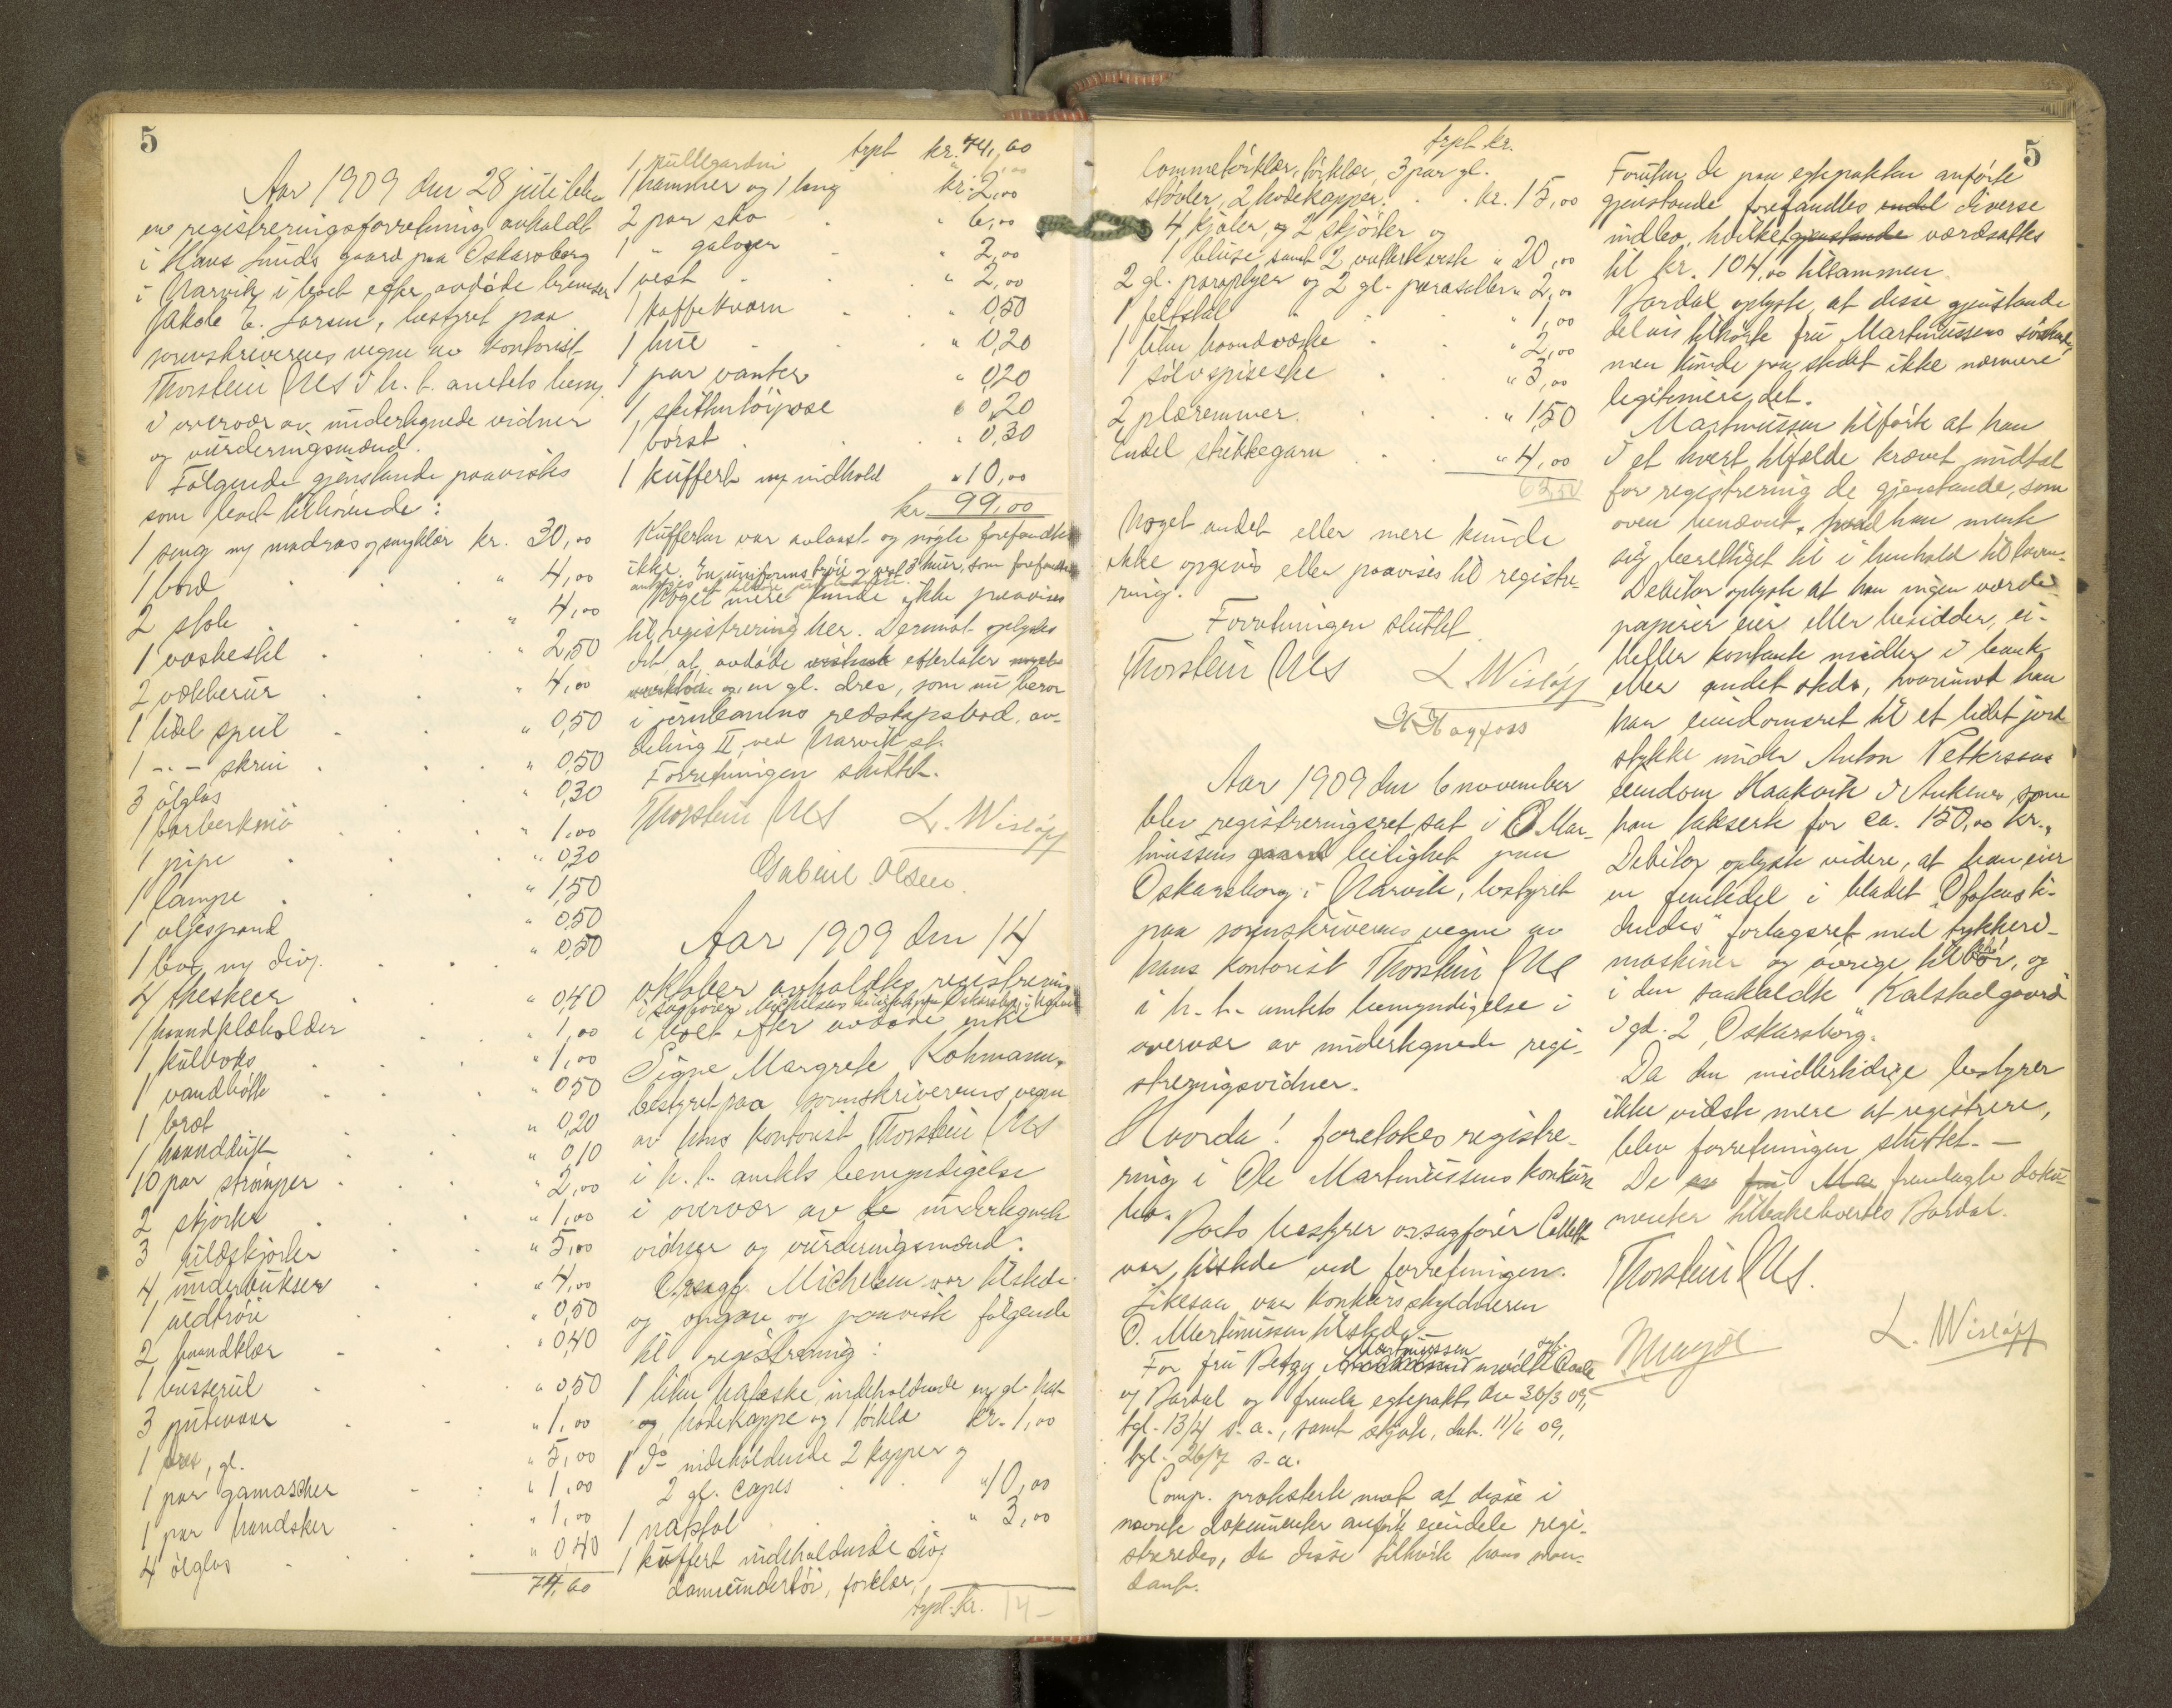 5
Aar 1909 den 28 juli blev
en registreringsforretning avholdt
i Hans Lunds gaard paa Oskarsborg
i Narvik i boet efter avdøde bremser
Jakob E. Larsen, bestyret paa
sorenskriverens vegne av kontorist
Thorstein Uls i h. t. amtets bem.
i overvær av undertegnede vidner
og vurderingsmænd.
Følgende gjenstande paavistes
som boet tilhørende:
1 seng m/ madras og sengklær kr. 30,00
1 bord " 4,00
2 stole " 4,00
1 vaskestel " 2,50
2 vækkerur " 4,00
1 litet speil " 0,50
1 -"- skrin " 0,50
3 ølglas " 0,30
1 barberkniv " 1,00
1 pipe " 0,30
1 lampe " 1,50
1 oljespand " 0,50
1 box m/ div. " 0,50
4 theskeer " 0,40
1 haandklæholder " 1,00
1 kulboks " 1,00
1 vandbøtte " 0,50
1 bræt " 0,20
1 haandduk " 0,10
10 par strømper " 2,00
2 skjorter " 1,00
3 uldskjorter " 5,00
4 underbukser " 4,00
1 uldtrøie " 0,50
2 haandklær " 0,40
1 busserul " 0,50
3 putevaar " 1,00
1 dres, gl. " 5,00
1 par gamascher " 1,00
1 par handsker " 1,00
4 ølglas " 0,40
74,60
Trpt kr. 74,60
1 rullegardin
1 hammer og 1 tang kr. 2,00
2 par sko " 6,00
1 " galoger " 2,00
1 vest " 2,00
1 kaffekvern " 0,50
1 hue " 0,20
1 par vanter " 0,20
1 skittentøipose " 0,20
1 børst " 0,30
1 kuffert m/ indhold " 10,00
kr. 99,00
Kufferten var avlaast og nøgle forefandtes
ikke. En uniformstrøie og 3 huer, som forefandtes
Noget mere kunde ikke paavises
til registrering her. Derimot oplystes
det at avdøde efterlater
og en gl. dres, som nu beror
i jernbanens redskapsbod, av-
deling II ved Narvik st.
Forretningen sluttet.
Thorstein Uls L. Wisløff
Gabriel Olsen.
Aar 1909 den 14
oktober avholdtes registrering
i sagfører Michelsens leilighet paa Oskarsborg i Narvik
i boet efter avdøde enke
Signe Margrete Kohmann,
bestyret paa sorenskriverens vegne
av hans kontorist Thorstein Uls
i h. t. amtets bemyndigelse
i overvær av de undertegnede
vidner og vurderingsmænd.
O.rsagf. Michelsen var tilstede
og opgav og paaviste følgende
til registrering:
1 liten hatæske indeholdende en gl. hat
og hodekappe og 1 tørklæ kr. 1,00
1 do indeholdende 2 kapper og
2 gl. capes " 10,00
1 natstol " 3,00
1 kuffert indeholdende div.
dameundertøi, forklær,
trpt. kr. 14-
5
trpt kr.
lommetørklær, tørklær, 3 par gl.
støvler, 2 hodekapper. kr. 15,00
4 kjoler, og 2 skjørter og
1 bluse, samt 2 " 20,00
2 gl. paraplyer og 2 gl. parasoller " 2,00
1 feltstol " 1,00
1 liten haandvæske " 2,00
1 sølvspiseske " 3,00
2 plæremmer " 1,50
Endel strikkegarn " 4,00
62,50
Noget andet eller mere kunde
ikke opgives eller paavises til registre-
ring.
Forretningen sluttet.
Thorstein Uls L. Wisløff
H Hagfoss
Aar 1909 den 6 november
blev registreringsret sat i O Mar-
tinussens gaard leilighet paa
Oskarsborg i Narvik, bestyret
paa sorenskriverens vegne av
hans kontorist Thorstein Uls
i h. t. amtets bemyndigelse i
overvær av undertegnede regi-
streringsvidner.
Hvorda! foretokes registre-
ring i Ole Martinussens konkurs
bo.
Boets bestyrer o.rsagfører Collett
var tilstede ved forretningen.
Likesaa var konkursskyldneren
O. Martinussen tilstede.
For fru Betzy Martinussen møtte
Bardal og fremla egtepakt, dat 30/3 09,
tgl. 13/4 s. a., samt skjøte, dat. 11/6 09,
tgl. 26/7 s. a.
Comp. protesterte mot at disse i
nævnte dokumenter anførte eiendele regi-
streredes, da disse tilhørte hans man-
dant.
Foruten de paa egtepakten anførte
gjenstande forefandtes endel diverse
indbo, hvilket gjenstande værdsattes
til kr. 104,00 tilsammen.
Bardal oplyste at disse gjenstande
delvis tilhørte fru Martinussens søster,
men kunde paa stedet ikke nærmere
legitimere det.
Martinussen tilførte at han
i et hvert tilfælde krævet undtat
for registrering de gjenstande, som
oven nævnt, han mente
sig berettiget til i henhold til loven.
Debitor oplyste at han ingen værdi-
papirer eier eller besidder, ei-
heller kontante midler i bank
eller andet sted, hvorimot han
har eiendomsret til et litet jord
stykke under Anton Petterssens
eiendom Haakvik i Ankenes, som
han takserte for ca. 150,00 kr.,
Debitor oplyste videre, at han eier
en femtedel i bladet "Ofotens ti-
dendes" forlagsret med trykkeri-
maskiner og øvrige tilbehør, og
i den saakaldte "Kalstadgaard
i gd. 2, Oskarsborg".
Da den midlertidige bestyrer
ikke vidste mere at registrere,
blev forretningen sluttet. -
De av fru Mar fremlagte doku-
menter tilbakeleveres Bardal.
Thorstein Uls.
L. Wisløff